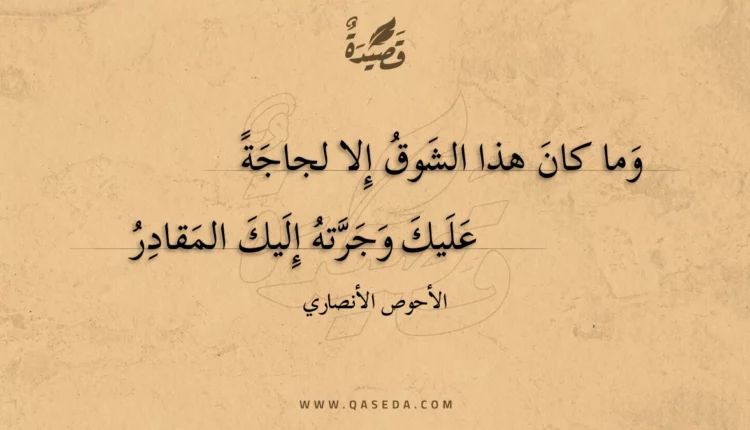 قَصِيْدَةٌ
وَما كانَ هذا الشَوقُ إِلا لجاجَةً
عَلَيكَ وَجَرَّتهُ إِلَيكَ المَقادِرُ
الأحوص الأنصاري
WWW.QASEDA.COM